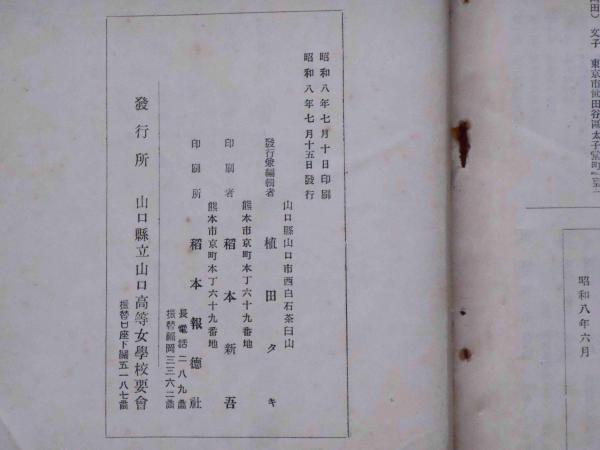 昭和八年七月十日印刷
昭和八年七月十五日發行
山口縣山口市西白石茶臼山
發行兼編輯者 植田タキ
熊本市京町本丁六十九番地
印刷者 稻本新吾
熊本市京町本丁六十九番地
印刷所 稻本報德社
長電話二八九番
振替福岡三三六二番
發行所 山口縣立山口高等女學校要會
振替口座下關五一八七番
文子 東京市世田谷區太子堂町
昭和八年六月